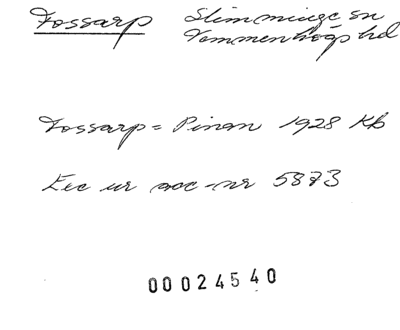 Fossarp Slimminge sn
Vemmenhögs hd
Fossarp = Pinan 1928 Kb
Exc ur acc-nr 5873
00024540